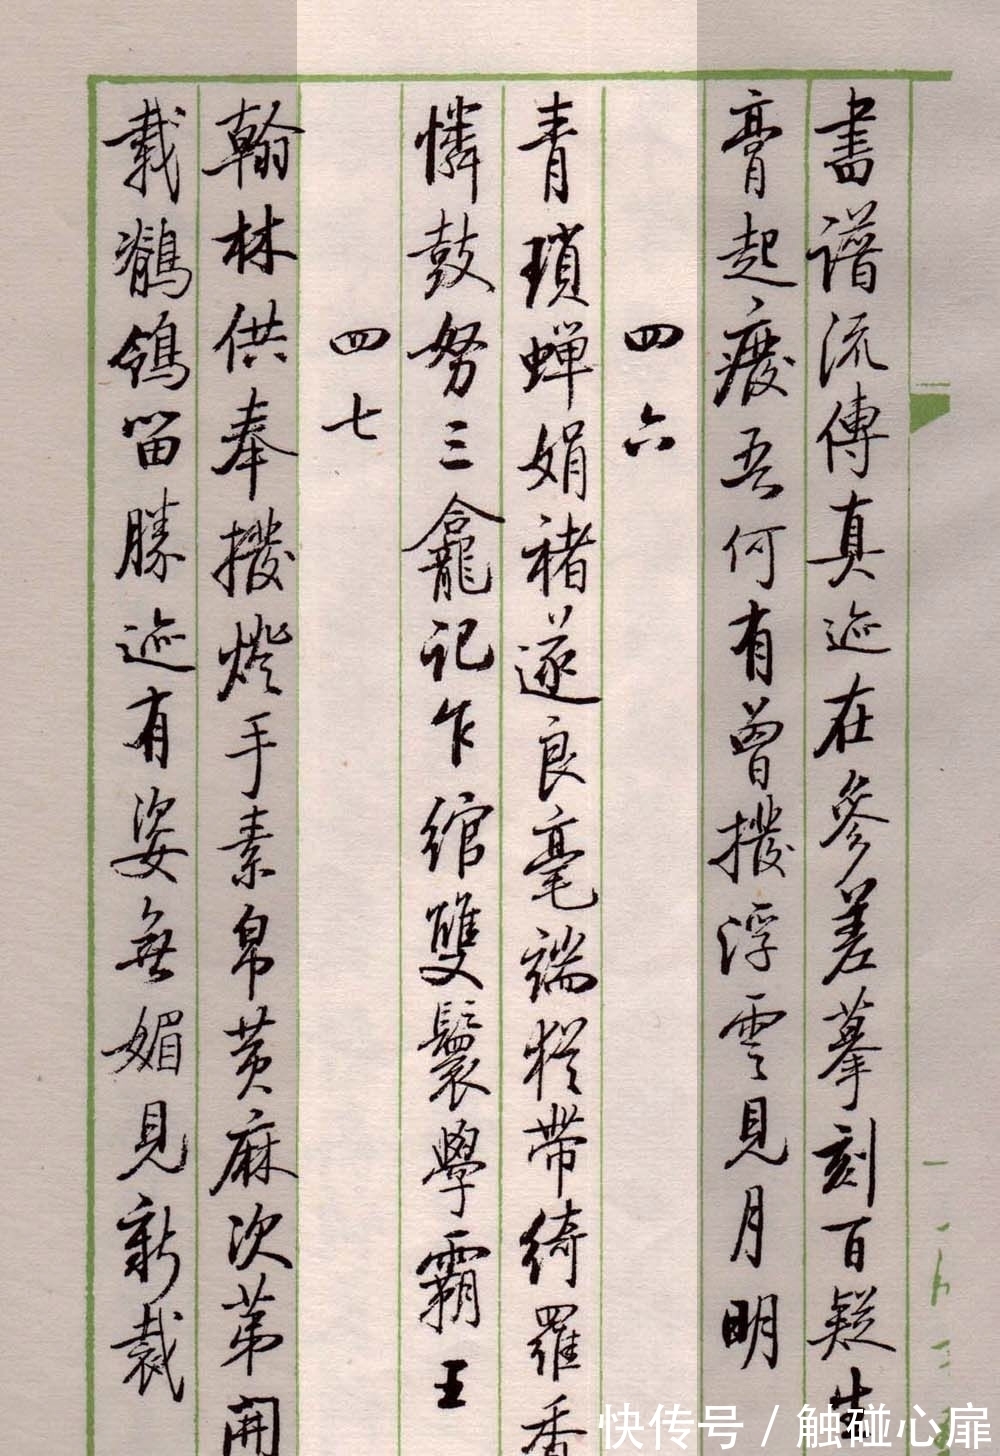 書譜流傳真迹在參差摹刻百疑生
膏起廢吾何有曾撥浮雲見月明
四六
青瑣蟬娟褚遂良毫端猶帶綺羅香
憐鼓努三龕記乍綰雙鬟學霸王
四七
翰林供奉撥燈手素帛黃麻次苐開
載鶺鴒留勝迹有姿無媚見新裁
快传号 / 触碰心扉